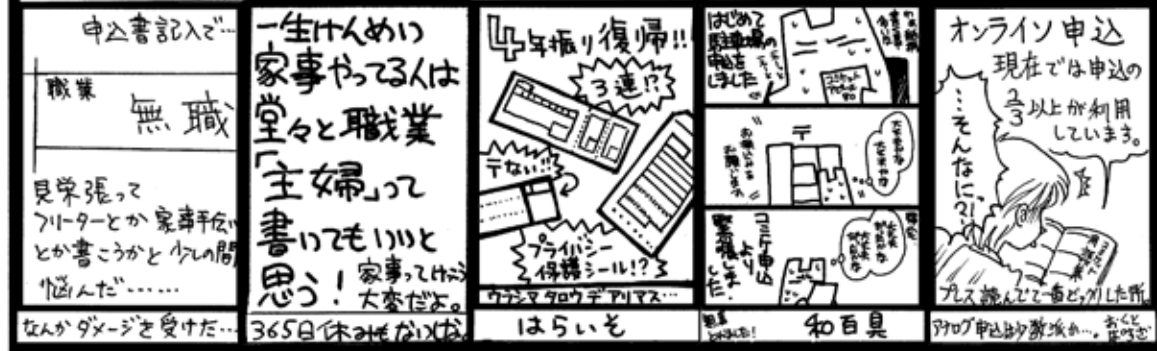 申込書記入で…
職業
無職
見栄張って
フリーターとか家事手伝い
とか書こうかと少しの間
悩んだ……
なんかダメージを受けた…
一生けんめい
家事やってる人は
堂々と職業
「主婦」って
書いてもいいと
思う!
家事ってけっこう
大変だよ。
365日休みもないしな。
4年振り復帰!!
3連!?
〒ない!!
プライバシー
保護シール!?
ウラシマタロウデアリマス…
はらいそ
はじめて
駐車場の
申込を
しました
〒
お願いします
大丈夫かな
大丈夫かな
コミケ申込
より
緊張しました.
和百具
オンライン申込
現在では申込の
2/3以上が利用
しています。
…そんなに?!
プレス読んでて一番ビックリした所。
アナログ申込は少数派か…。